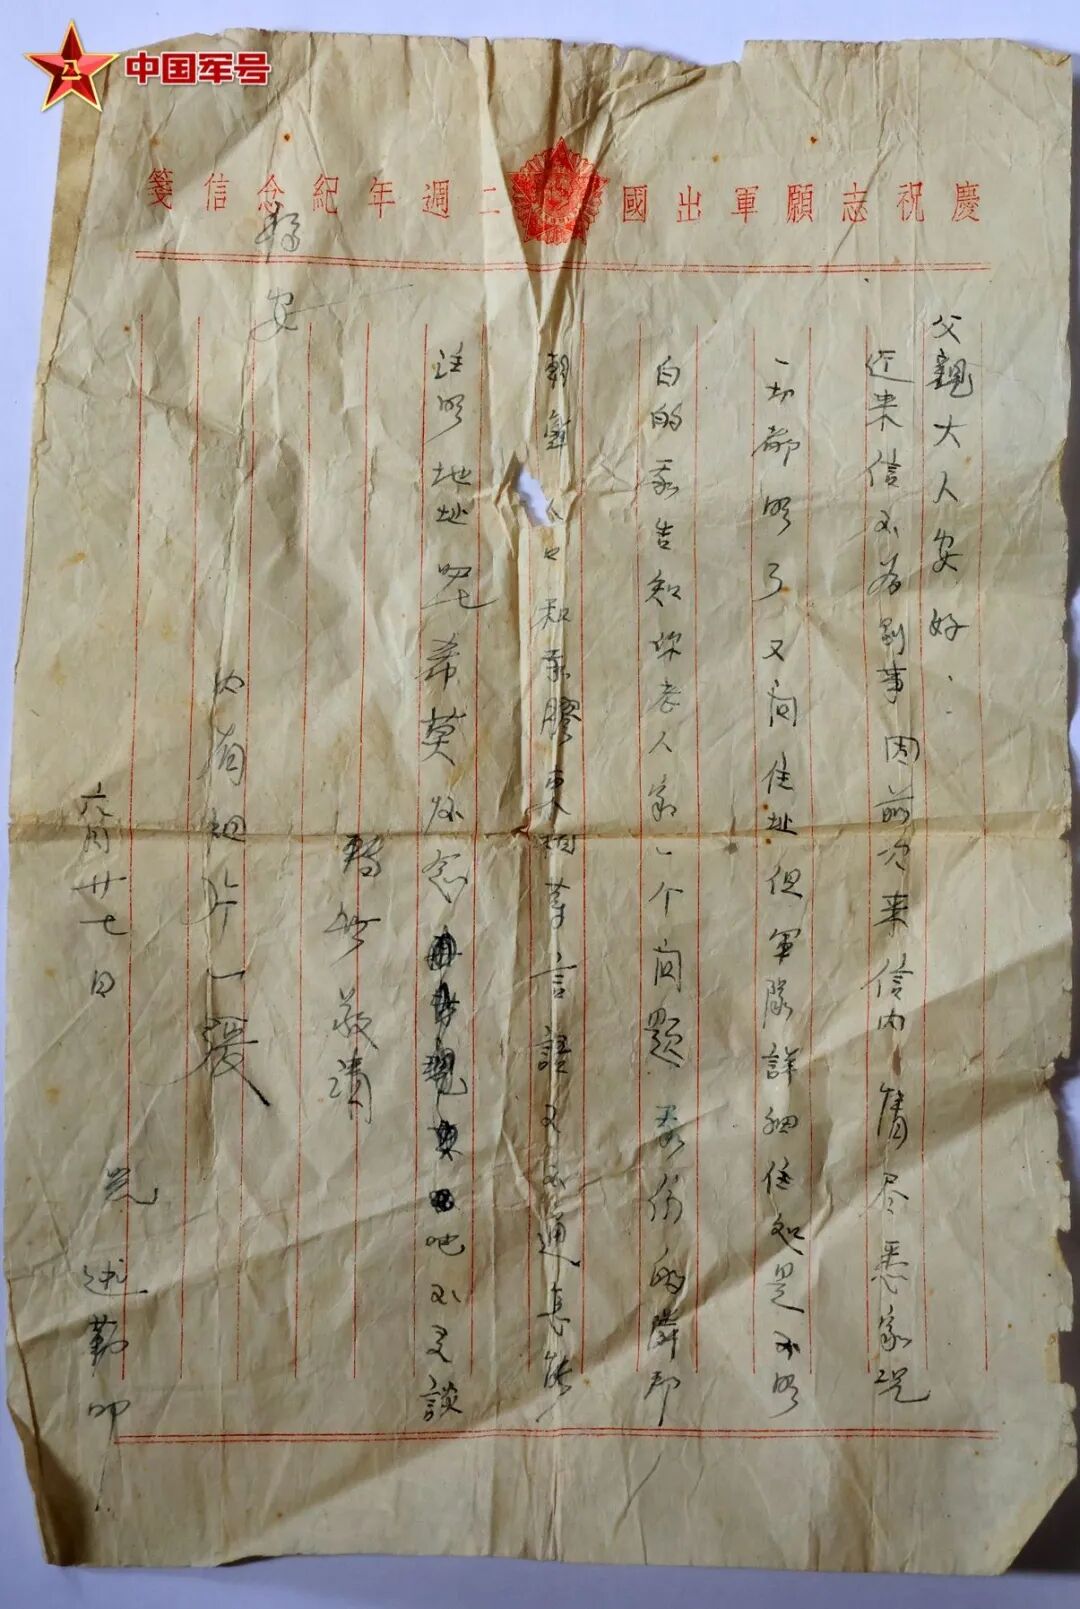 中国军号
慶祝志願軍出國二週年紀念信箋
父親大人安好
近来信不为别事因前次来信内情尽悉家况
一切都明了又问住址但軍隊詳細住知是不明
白的我告知你老人家一个问题我们的隣邦
朝鮮 和我膠東相等言語又不通怎能
註明地址呢希莫怀念 吧不多談
暫此敬请
安
内有相片一張
六月廿七日 兒 述勤叩